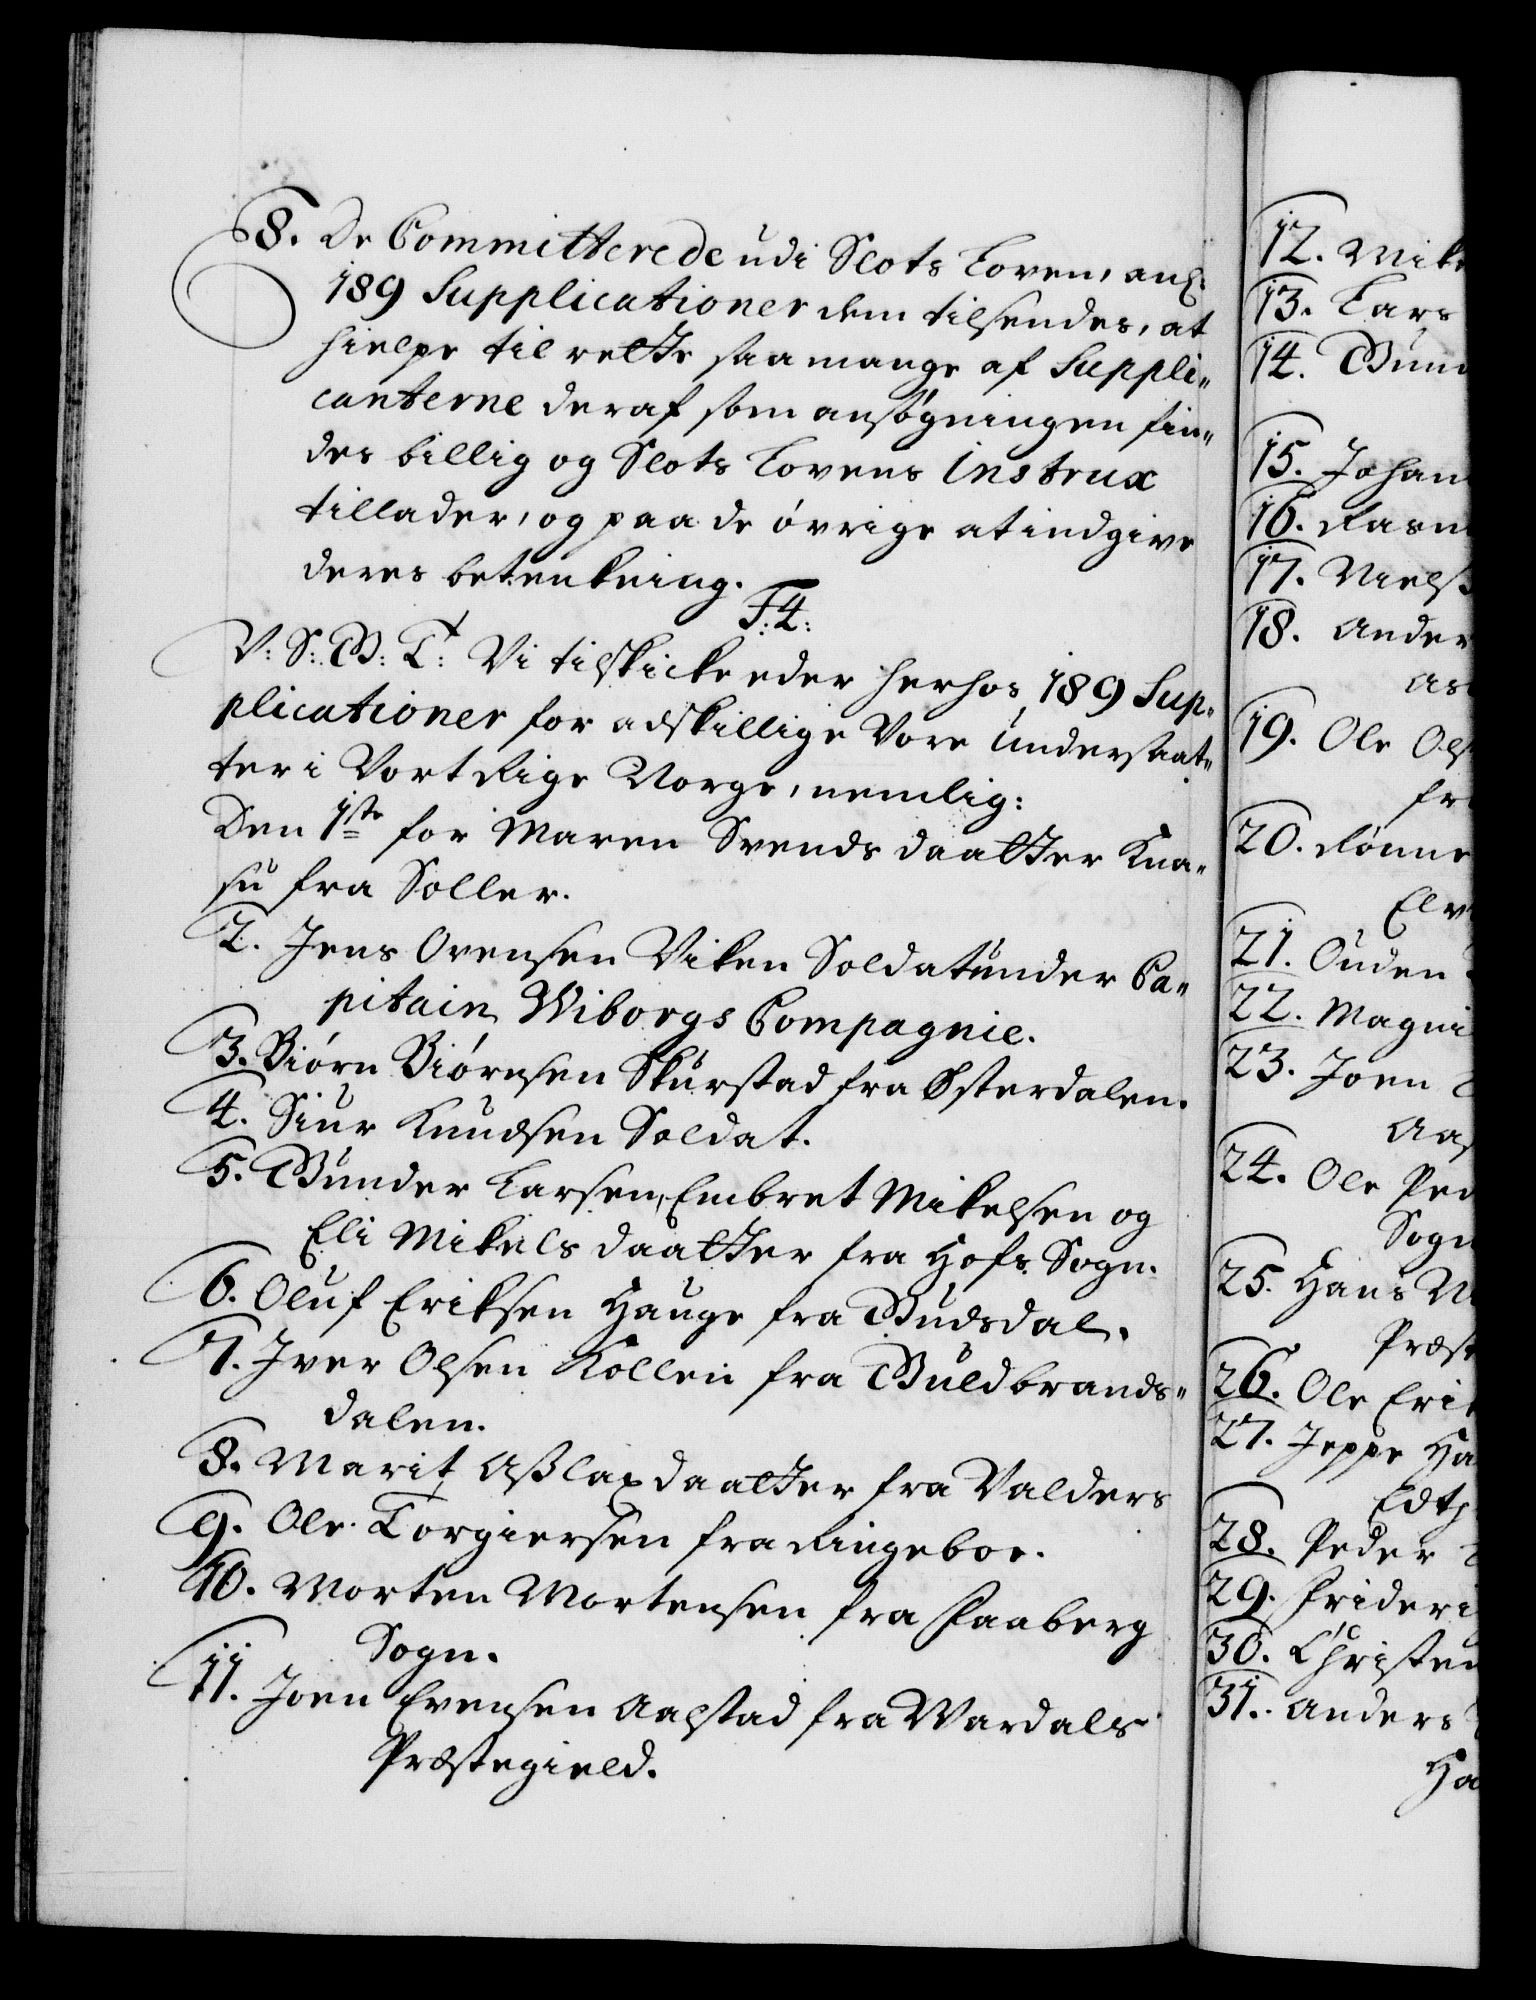 8. De Committerede udi Slots Loven, anl:
189 Supplicationer dem tilsendes, at
hielpe til rette saa mange af Suppli„
canterne deraf som ansøgningen fin„
des billig og Slots Lovens Instrux
tillader, og paa de øvrige at indgive
deres betenkning.
F: 4:
V: S: G: T: Vi tilskicke eder herhos 189 Sup„
plicationer for adskillige Vore Undersaat„
ter i Vort Rige Norge, nemlig:
Den 1ste for Maren Svends daatter Kna„
su fra Soller.
2. Jens Ovensen Viken Soldat under Ca„
pitain Wiborgs Compagnie.
3. Biørn Biørnsen Skurstad fra Østerdalen.
4. Siur Knudsen Soldat.
5. Gunder Larsen, Embret Mikelsen og
Eli Mikels daatter fra Hofs Sogn.
6. Oluf Eriksen Hauge fra Gudsdal.
7. Iver Olsen Kollen fra Guldbrands„
dalen.
8. Marit Aßlaxdaatter fra Valders
9. Ole Torgiersen fra Ringeboe.
10. Morten Mortensen fra Faaberg
Sogn.
11. Joen Evensen Aalstad fra Wardals
Præstegield.
12. Mik
13. Lars
14. Gun
15. Johan
16. Rasm
17. Nielß
18. Ander
19. Ole Ols
fr
20. Rønne
Elv
21. Ouden
22. Magni
23. Joen
Aas
24. Ole Ped
Sogn
25. Hans
Præst
26. Ole Erik
27. Jeppe Ha
28. Peder
29. Frideri
30. Christen
31. Anders
Ha